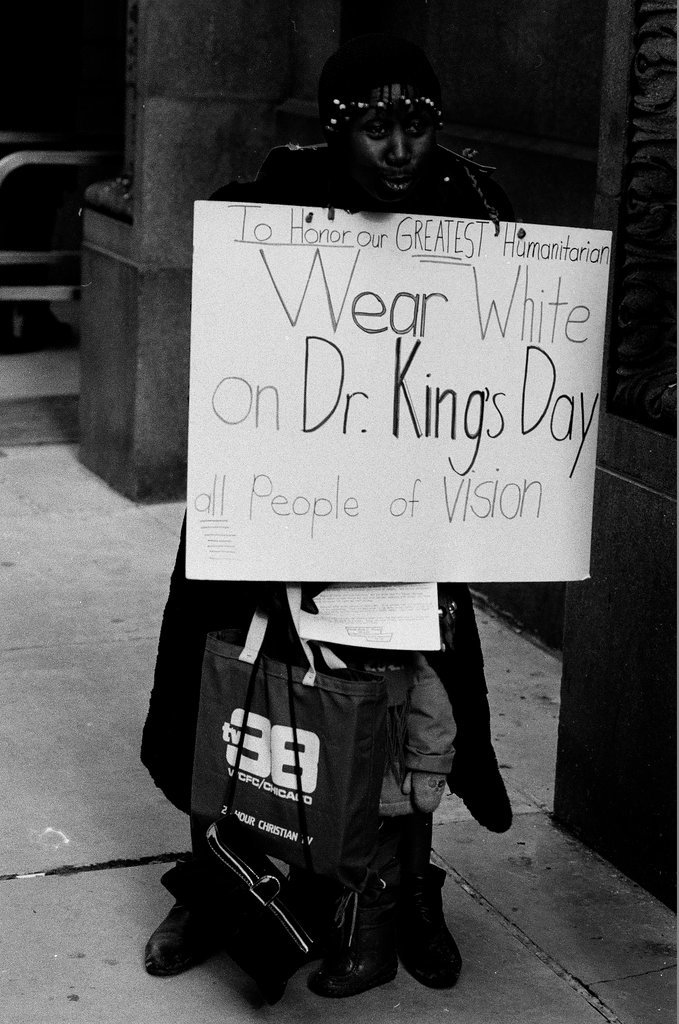 To Honor our GREATEST Humanitarian
Wear White
on Dr. King's Day
all People of Vision
tv
38
WCFC/CHICAGO
HOUR CHRISTIAN TV